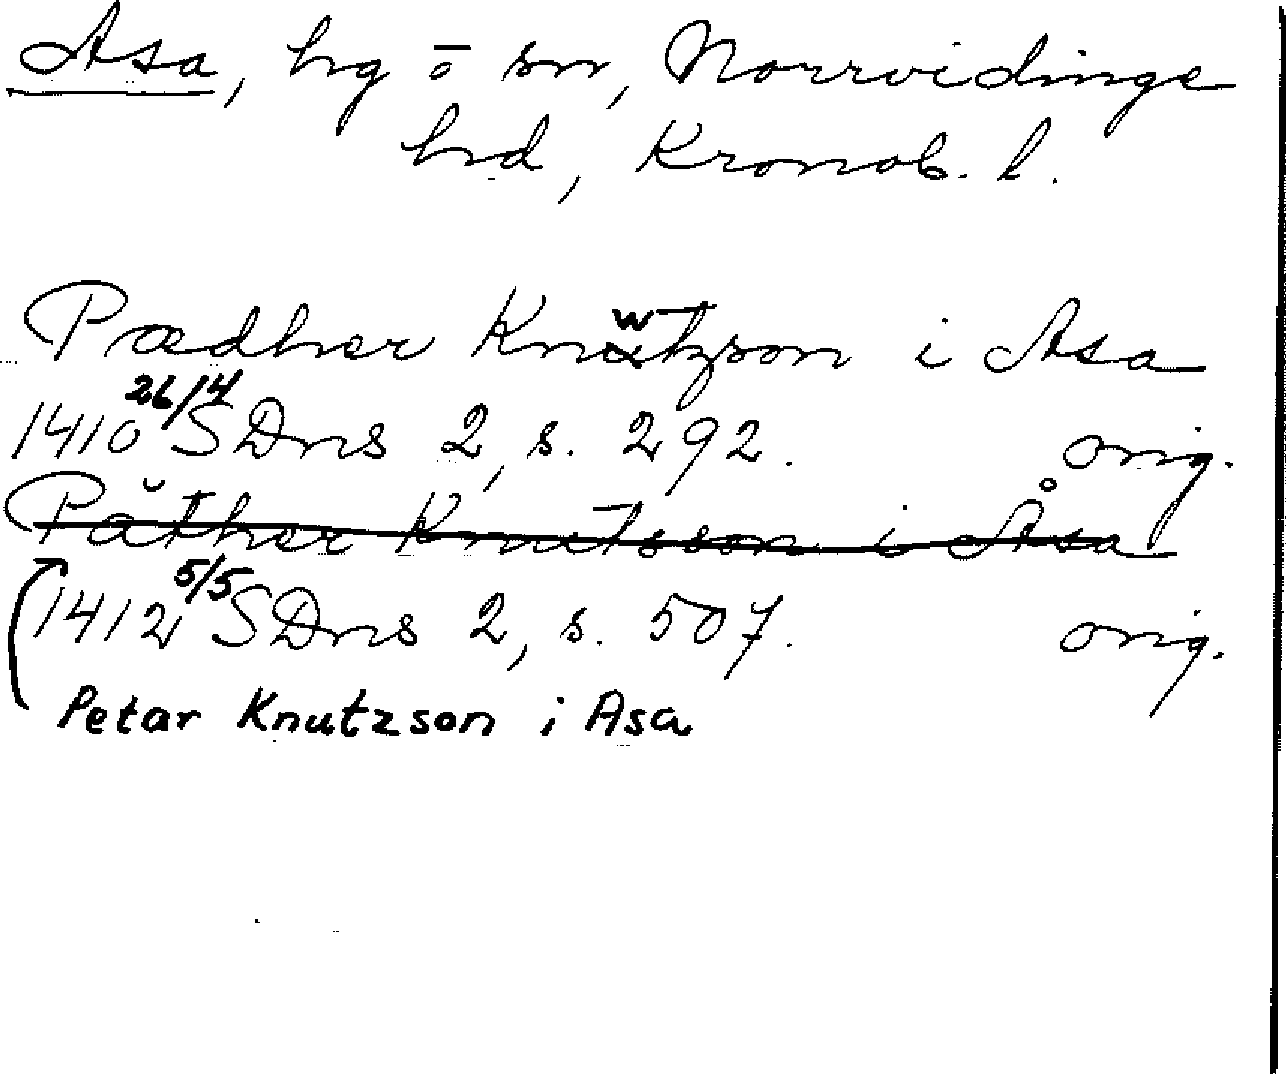 Asa, hg o sn, Norrvidinge
hd, Kronob. l.
Pædher Knwtzson i Asa
1410 26/4 SDns 2, s. 292. orig.
Päther Knutsson i Åsa
1412 5/5 SDns 2, s. 507. orig.
Petar Knutzson i Asa